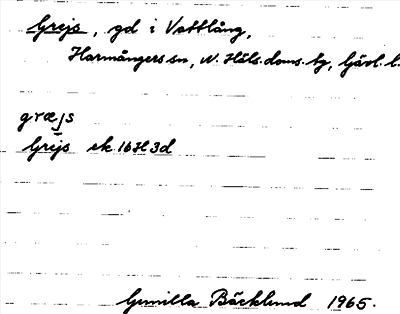 Grejs, gd i Vattlång,
Harmångers sn, N. Häls. doms. tg, Gävl. l.
græjs
Grejs ek 16H 3d
Gunilla Bäcklund 1965.